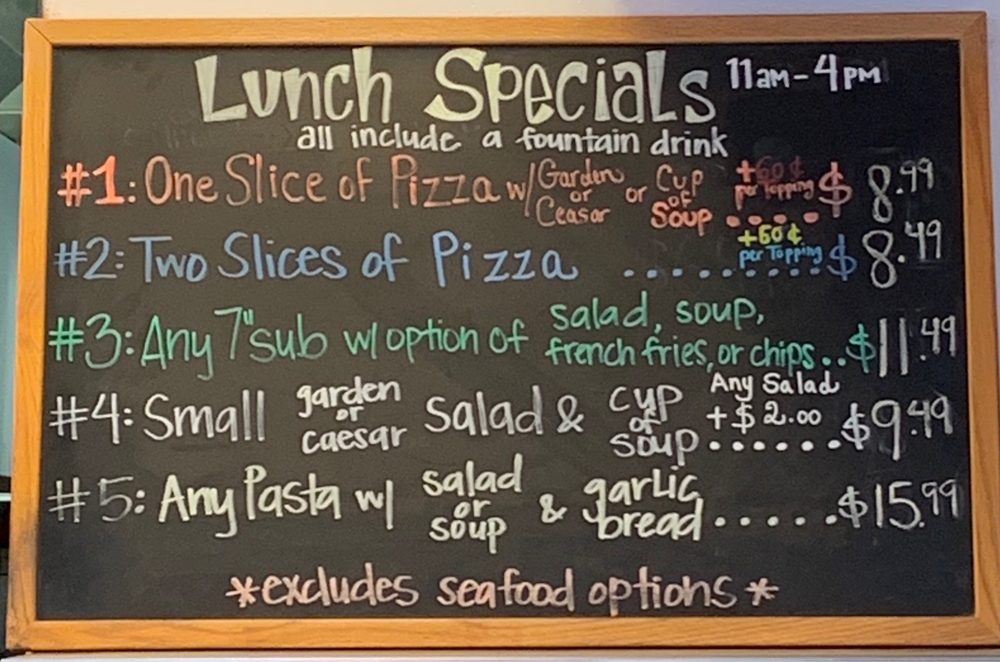 Lunch Specials 11am - 4pm
all include a fountain drink
#1: One Slice of Pizza w/ Garden or Ceasar or Cup of Soup +60¢ per Topping ..... $ 8.99
#2: Two Slices of Pizza +60¢ per Topping ......... $ 8.49
#3: Any 7" sub w/ option of salad, soup, french fries, or chips .. $11.49
#4: Small garden or caesar salad & cup of soup Any Salad + $2.00 ...... $9.49
#5: Any Pasta w/ salad or soup & garlic bread ...... $15.99
*excludes seafood options*